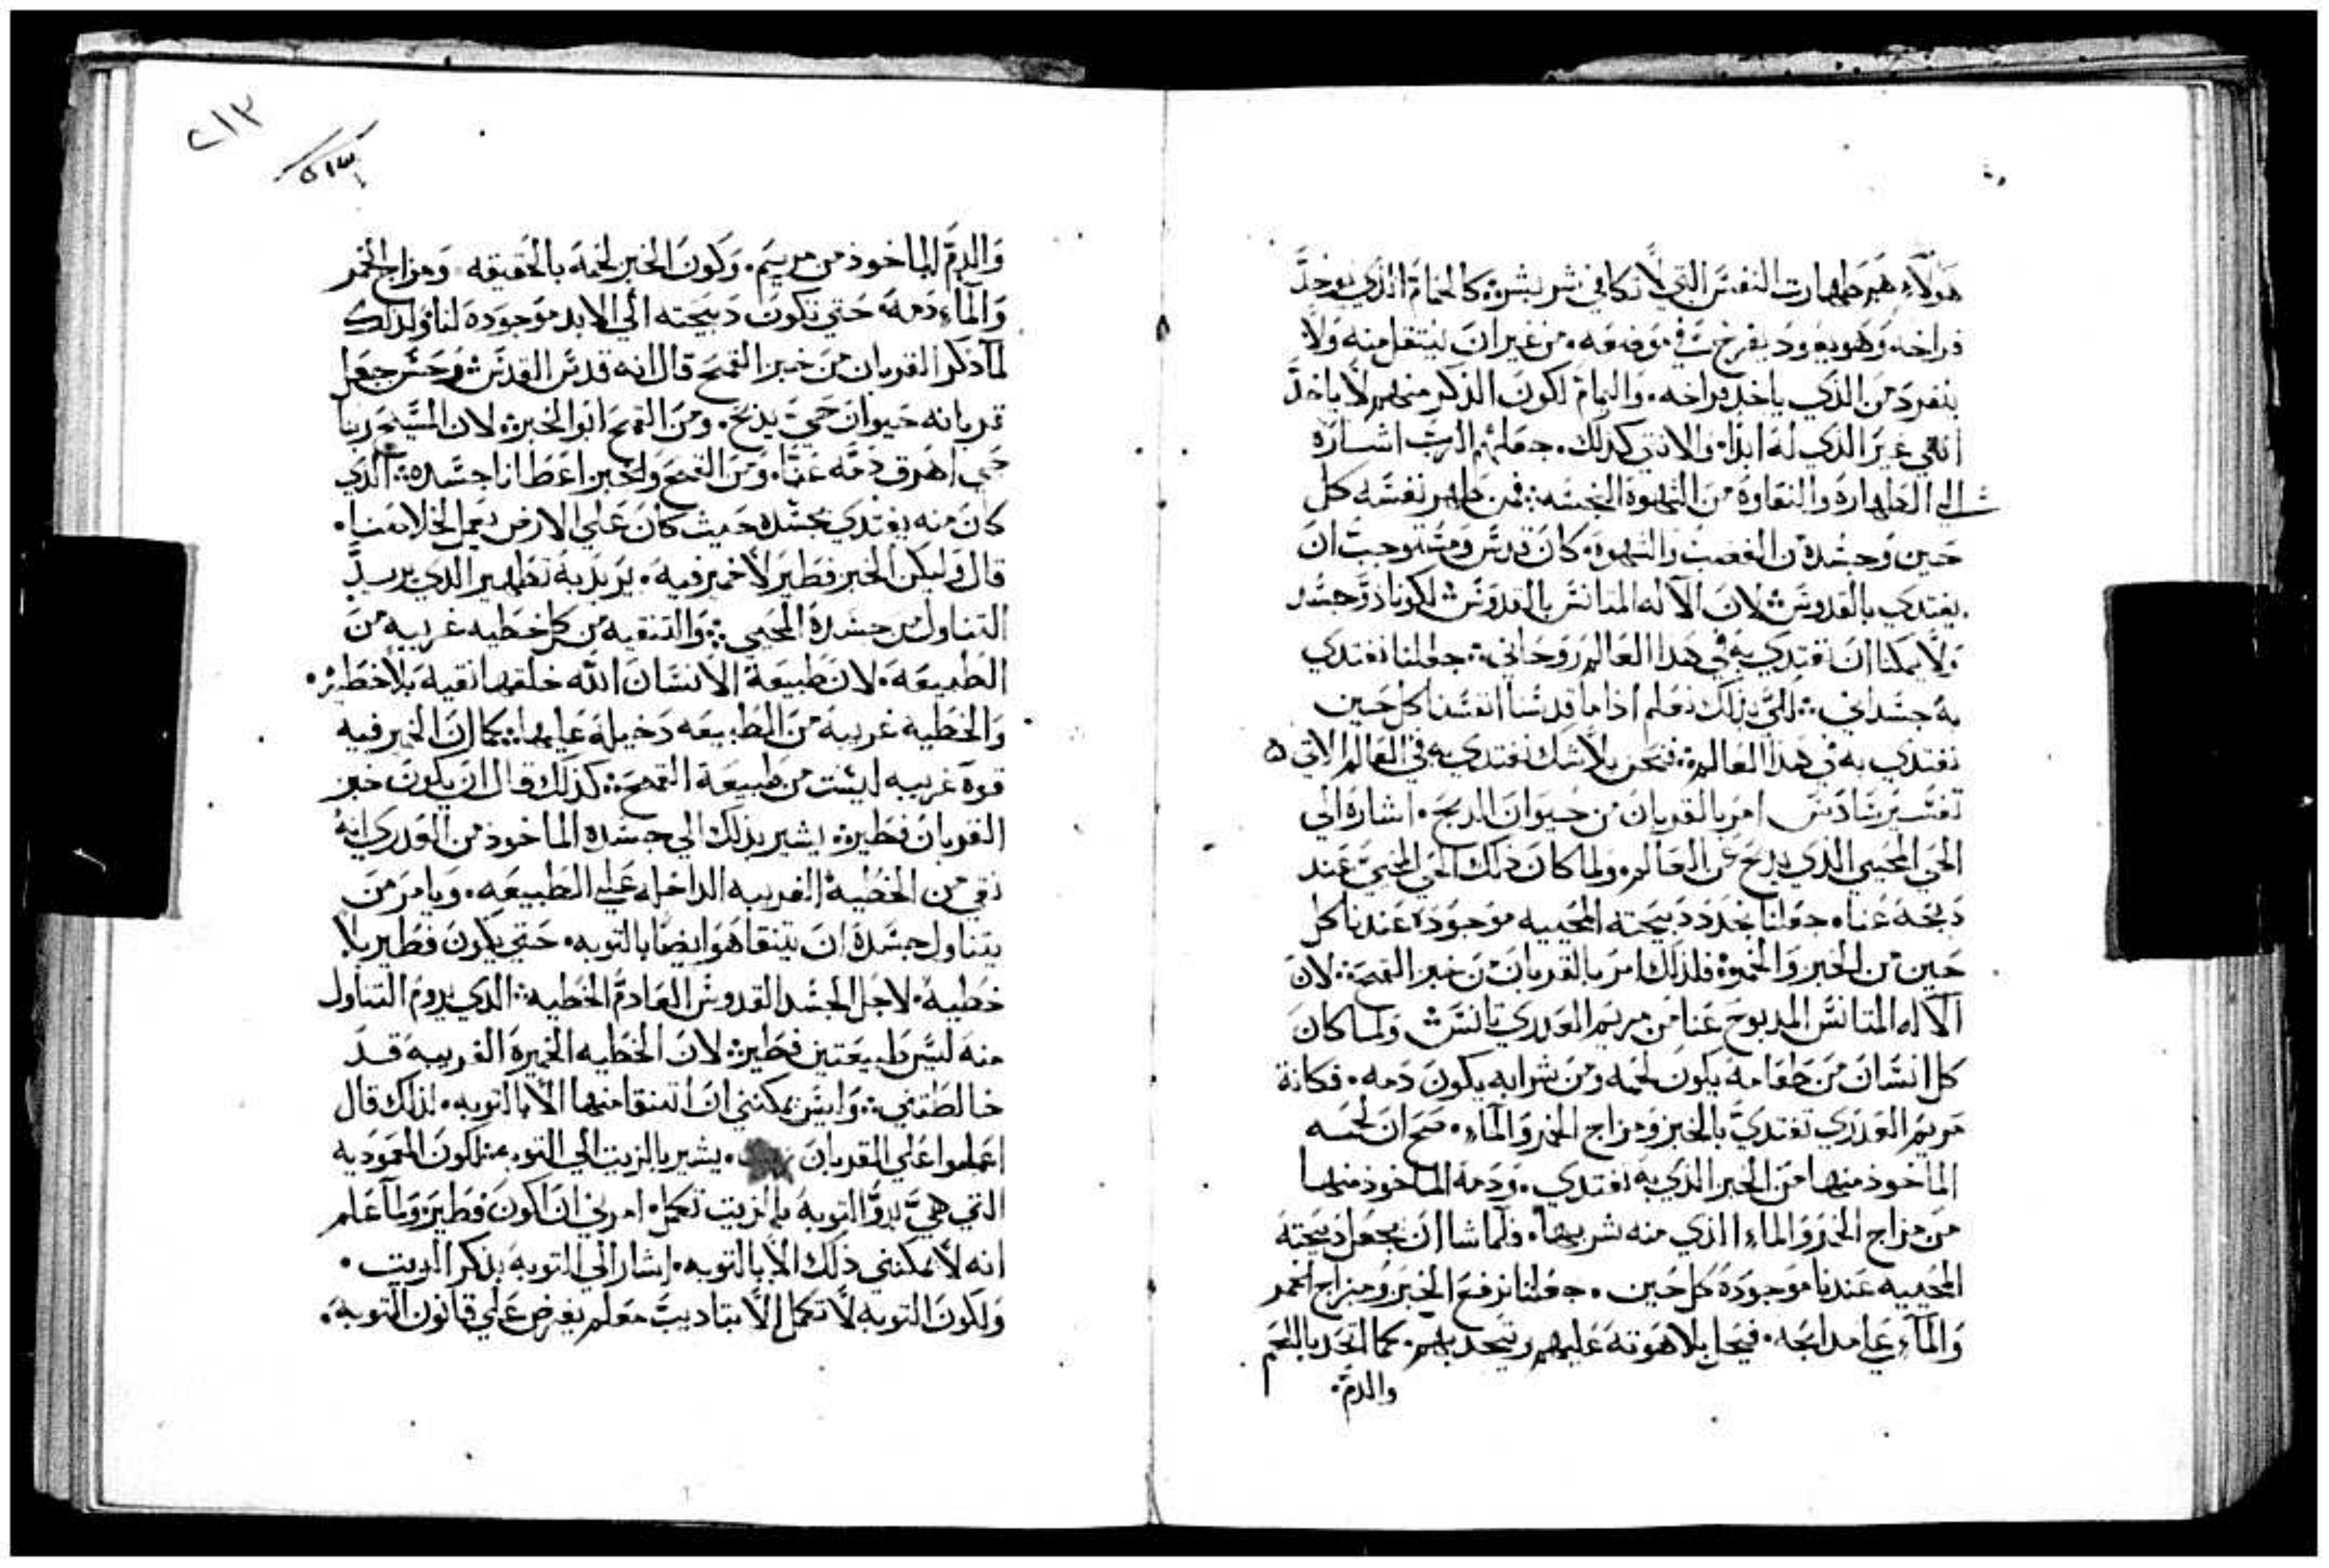 هولاء هم طهارت النفس التي لا تكافي شر بشر: كالحمام الذي توخد
فراخه وهو يعود يفرخ في موضعه. من غير ان ينتقل منه ولا
ينفرد من الذي ياخد فراخه. واليمام لكون الذكر منهم لا ياخد
انثي غير الذي له ابدا. والانثي كذلك. جعلهم الرب اشاره
الي الطهارة والنقاوة من الشهوة النجسه: فمن طهر نفسه كل
حين وجسده من الغضب والشهوة. كان قدس ومستوجب ان
يغتدي بالقدوس لان الآله المتانس بالقدوس لكونا ذو جسد
ولا يمكنا ان نغتدي به في هدا العالم روحاني: جعلنا نغتدي
به جسداني: لكي بذلك نعلم اذا ما قدسنا انفسنا كل حين
نغتذي به في هذا العالم: فنحن بلا شك نغتدي به في العالم الاتي ه
تفسير سادس امر بالقربان من حيوان الدبح. اشارة الي
الحي المحيي الذي يدبح عن العالم. ولما كان ذلك الحي المحيي عند
دبحه عنا. جعلنا نجدد دبيحته المحييه موجودة عندنا كل
حين من الخبز والخمر: فلذلك امر بالقربان من خبز القمح: لان
الآله المتانس المدبوح عنا من مريم العدري تانس ولما كان
كل انسان من طعامه يكون لحمه ومن شرابه يكون دمه. فكانة
مريم العدري تغتدي بالخبز ومزاج الخمر والماء. صح ان لحمه
الماخوذ منها من الخبز الذي به تغتدي. ودمه الماخوذ منها
من مزاج الخمر والماء الذي منه شربها. فلما شا ان يجعل دبيحته
المحييه عندنا موجودة كل حين. جعلنا نرفع الخبز ومزاج الخمر
والماء علي مدابحه. فيحل بلاهوته عليهم ويتحد بهم. كما اتحد باللحم
والدم.
٢١٣
والدم الماخوذ من مريم. وكون الخبز لحمه بالحقيقه ومزاج الخمر
والماء دمه حتي تكون دبيحته الي الابد موجودة لنا: ولدلك
لما ذكر القربان من خبز القمح قال انه قدس القدس وحسن جعل
قربانه حيوان حي يدبح. ومن القمح اتوا الخبز: لان المسيح ربنا
حي اهرق دمه عنا. ومن القمح والخبز اعطانا جسده: الذي
كان منه يغتدي بجسده حيث كان علي الارض يعمل الخلاصنا.
قال وليكن الخبز فطير لا خمير فيه. يريد به تطهير الذي يريد
التناول من جسده المحيي: والتنقيه من كل خطيه غريبه من
الطبيعه. لان طبيعة الانسان الله خلقها نقيه بلا خطيه.
والخطيه غريبه من الطبيعه دخيله عليها: كما ان الخمير فيه
قوة غريبه ليست من طبيعة القمح: كذلك قال ان يكون خبز
القربان فطير: يشير بذلك الي جسده الماخوذ من العدري انه
نقي من الخطية الغريبه الداخله علي الطبيعه. ويامر من
يتناول جسده ان يتنقا هو ايضا بالتوبه. حتي يكون فطير بلا
خطيه. لاجل الجسد القدوس العادم الخطيه: الذي يروم التناول
منه ليس طبيعتين فطير: لان الخطيه الخميرة الغريبه قد
خالطتني: وليس يمكنني ان اتنقا منها الا بالتوبه. لذلك قال
اعملوا علي القربان زيت. يشير بالزيت الي التوبه مثل كون المعموديه
التي هي بدو التوبه بالزيت تكمل. امرني ان اكون فطير ولما علم
انه لا يمكنني ذلك الا بالتوبه. اشار الي التوبه بذكر الزيت.
ولكون التوبه لا تكمل الا بتاديب معلم يفرض علي قانون التوبة.